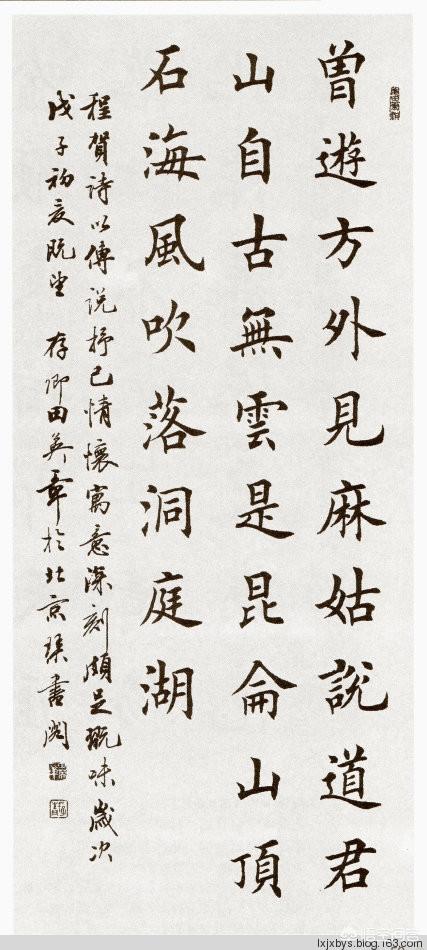 曾遊方外見麻姑說道君
山自古無雲是昆侖山頂
石海風吹落洞庭湖
程賀詩以傳說抒己情懷寓意深刻頗足翫味歲次
戊子初夏既望 存卿田英章於北京琹書閣
lxjxbys.blog.163.com